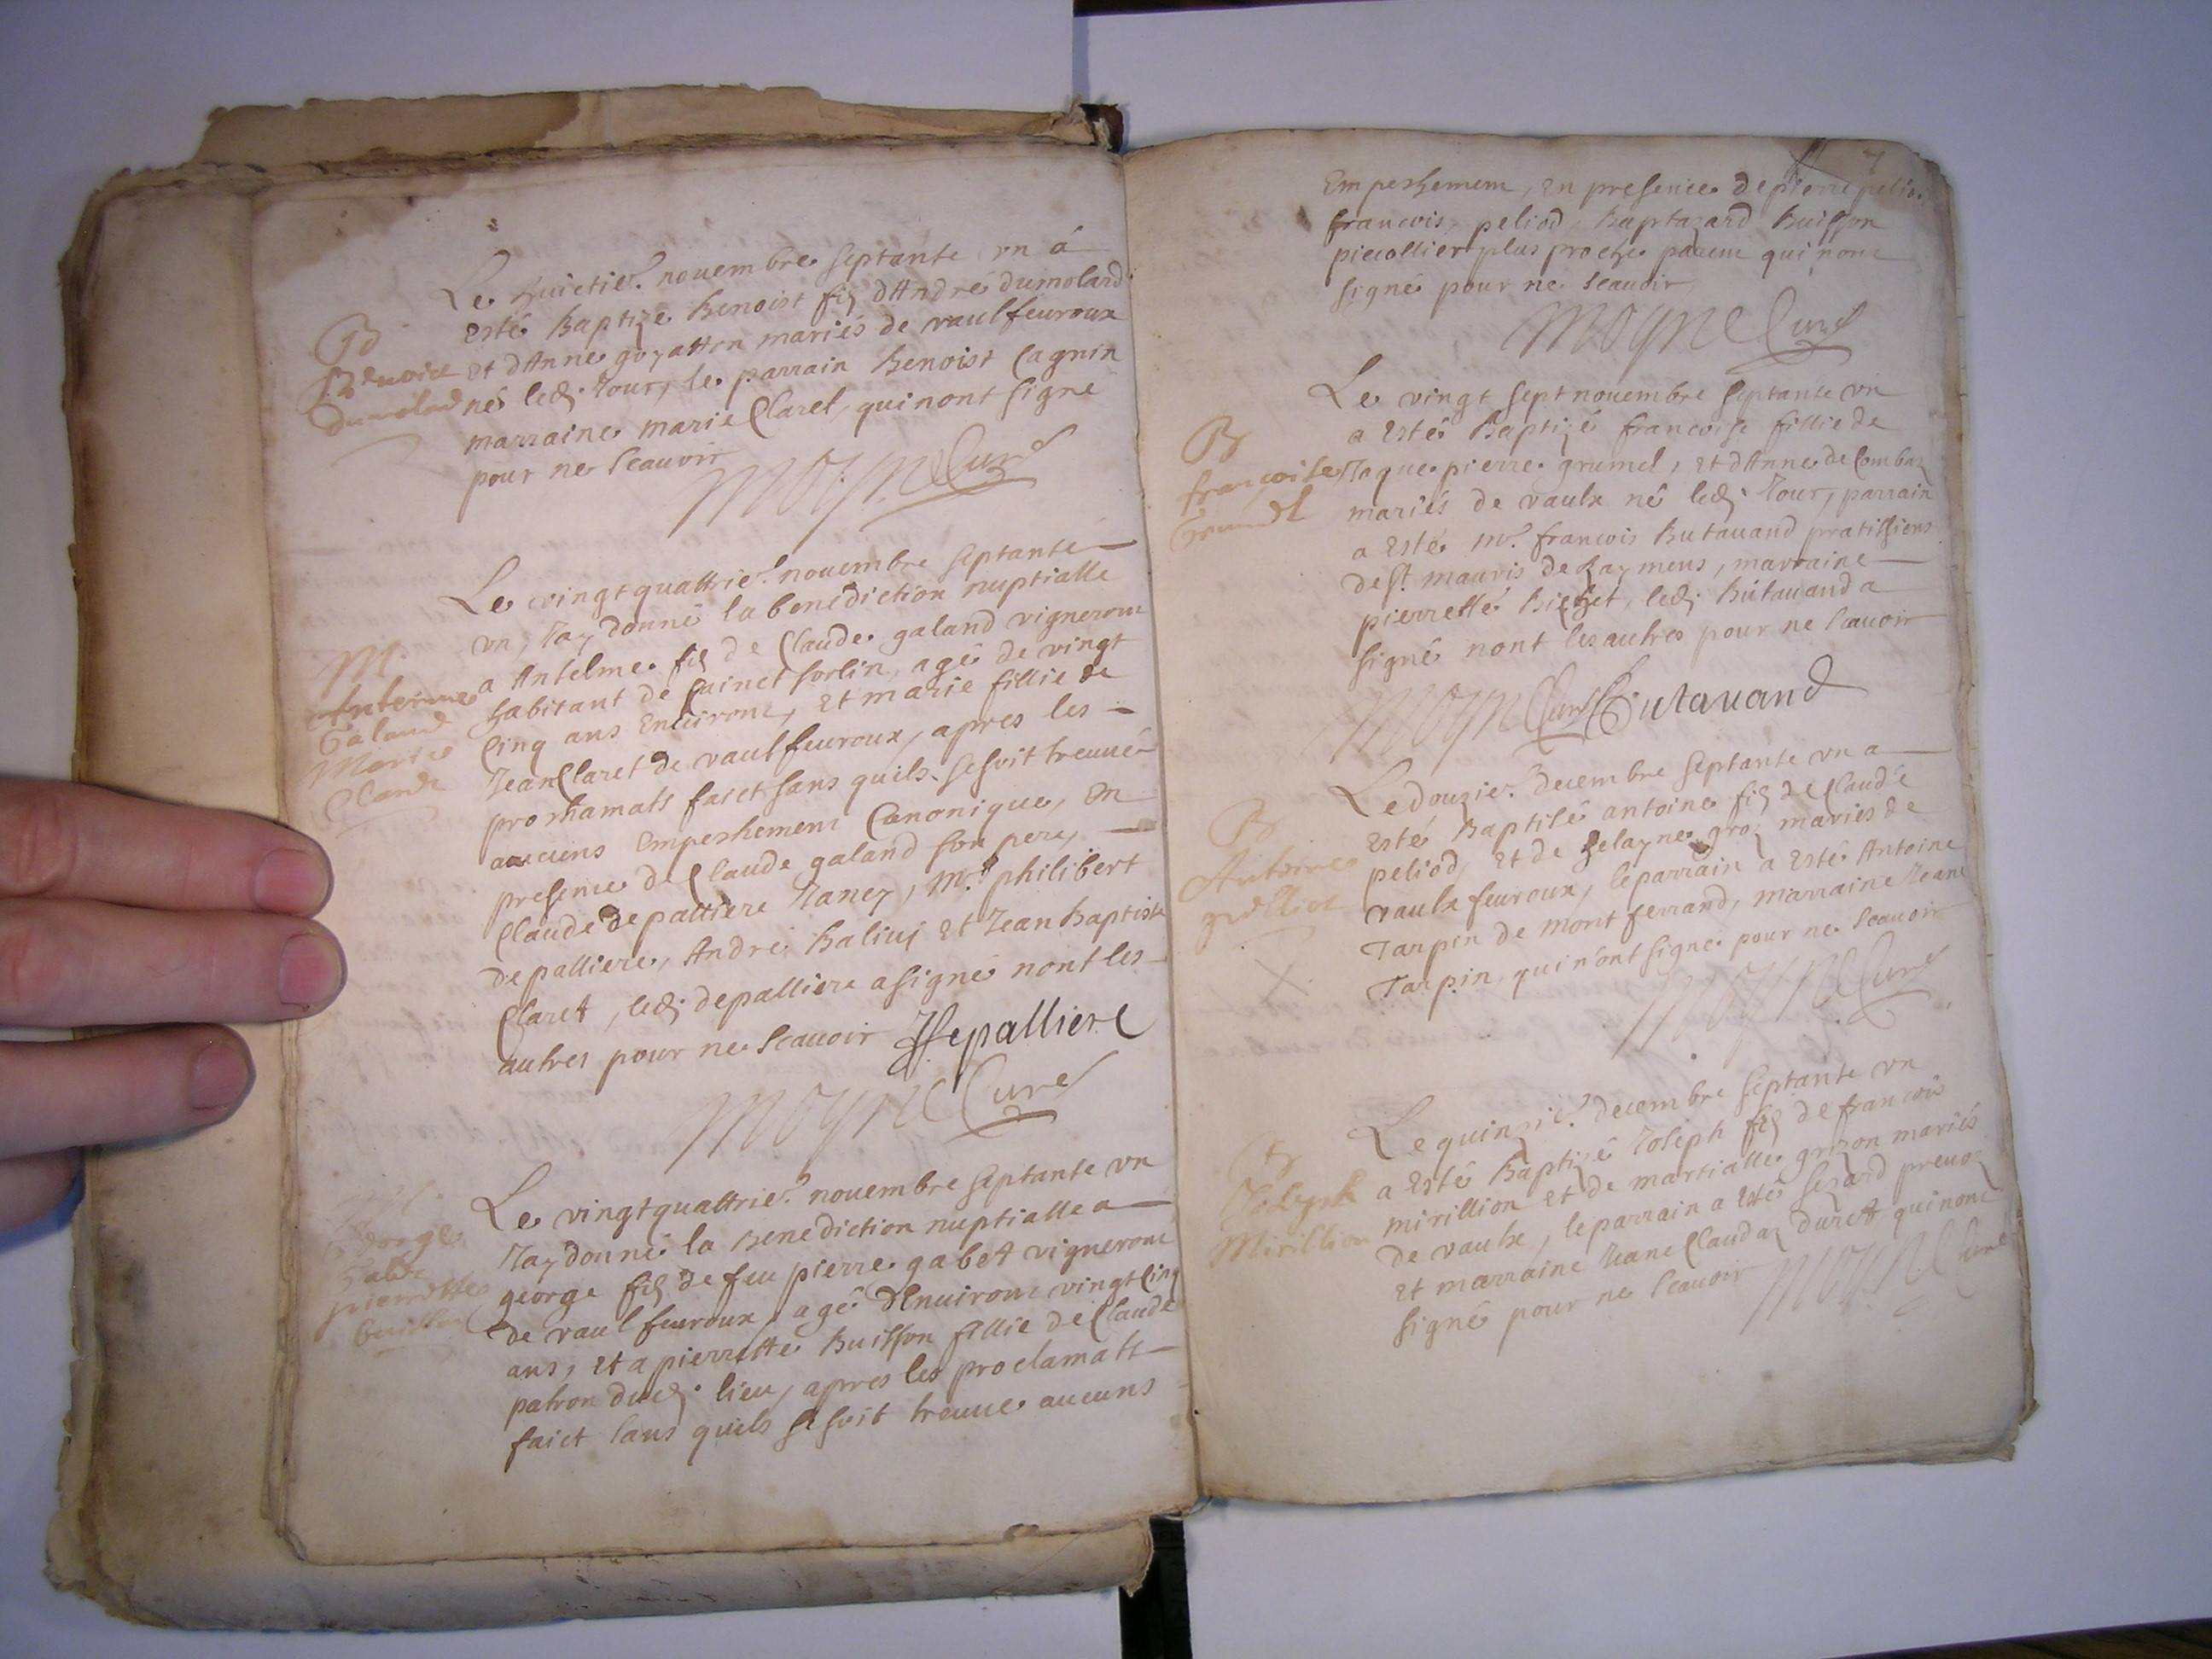 Le huictie. nouembre septante vn á
Esté Baptize Benoist fis dAndré dumolard
Et dAnne goyatton mariés de vaulfeuroux
né led. Jour, le parrain Benoist Cagnin
marraine marie Claret, qui nont signe
pour ne scauoir
Moyne Curé
B
Benoict
Dumolard
Le vingtquattrie. nouembre septante
vn, Jay donné la benediction nuptialle
a Antelme fis de Claude galand vigneront
habitant de sainct sorlin, agé de vingt
Cinq ans Enuiront, Et marie fillie de
Jean Claret de vaulfeuroux, apres les
proshamats faict sans quils se soit treuué
aucuns Empeshement Canonique, En
presence de Claude galand son pere,
Claude depalliere Nancy, Mr. philibert
depalliere, André Baliuj Et Jean Baptiste
Claret, led. depalliere a signé nont les
autres pour ne scauoir Depalliere
Moyne Curé
M.
Antelme
Galand
Marie
Claret
Le vingtquattrie. nouembre septante vn
Jay donné la Benediction nuptialle a
george fis de feu pierre gabet vigneront
de vaulfeuroux, agé dEnuiront vingt Cinq
ans, Et a pierrette Buisson fillie de Claude
patron dud. lieu, apres les proclamatt
faict sans quils se soit treuue aucuns
George
Gabet
pierrette
buisson
Empeshement, En presence de pierre peliod
francois peliod, Baptazard Buisson
pierollier plus proche parent qui nont
signé pour ne scauoir
Moyne Curé
Le vingt sept nouembre septante vn
a Esté Baptizé francoise fillie de
Jaque pierre grumel, Et dAnne de Combaz
mariés de vaulx né led. Jour, parrain
a Esté Mr. francois Butauand pratissiens
de st. mauris de Raymens, marraine
pierrette Bichet, led. Butauand a
signé nont les autres pour ne scauoir
Moyne Curé Butauand
B
francoise
Grumel
Le douzie. Decembre septante vn a
Esté Baptisé antoine fis de Claude
peliod, Et de helayne groz mariés de
vaulx feuroux, le parrain a Esté Antoine
Tarpin de montferrand, marraine Jeane
Tarpin, qui n'ont signé pour ne scauoir
Moyne Curé
B
Antoine
pelliod
Le quinzie. decembre septante vn
a Esté Baptizé Joseph fis de francois
mirillion Et de martialle grizon mariés
de vaulx, le parrain a Esté sezard preuoz
Et marraine Jeane Claudaz durett qui nont
signé pour ne scauoir Moyne Curé
B
Joseph
Mirillion